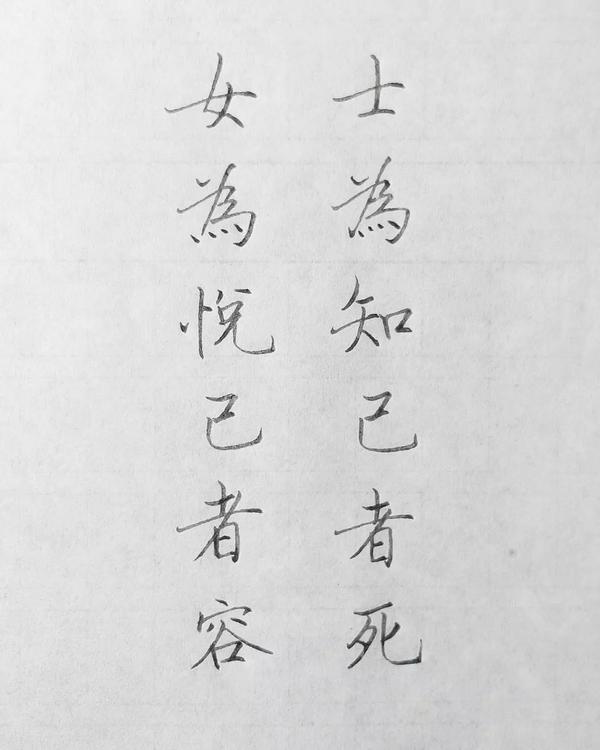 士為知己者死
女為悅己者容